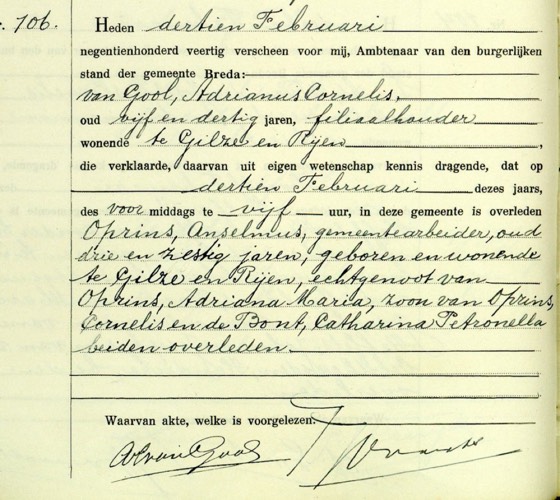 r. 706. Heden dertien Februari
negentienhonderd veertig verscheen voor mij, Ambtenaar van den burgerlijken
stand der gemeente Breda:
van Gool, Adrianus Cornelis,
oud vijf en dertig jaren, filiaalhouder
wonende te Gilze en Rijen,
die verklaarde, daarvan uit eigen wetenschap kennis dragende, dat op
dertien Februari dezes jaars,
des voor middags te vijf uur, in deze gemeente is overleden
Oprins, Anselmus, gemeentearbeider, oud
drie en zestig jaren, geboren en wonende
te Gilze en Rijen, echtgenoot van
Oprins, Adriana Maria, zoon van Oprins,
Cornelis en de Bont, Catharina Petronella
beiden overleden.
Waarvan akte, welke is voorgelezen.
AC van Gool